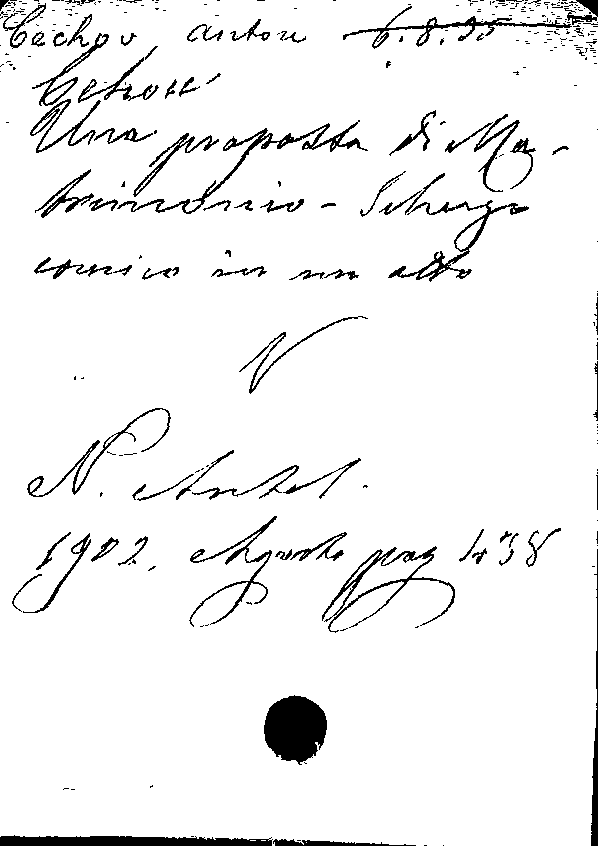 Cechov Anton 6.8.35
Cehow
Una proposta di Ma-
trimonio - Scherzo
comico in un atto
V
N. Antol.
1902. Agosto pag 438